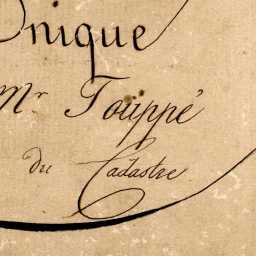 Unique
Mr Touppé
du Cadastre